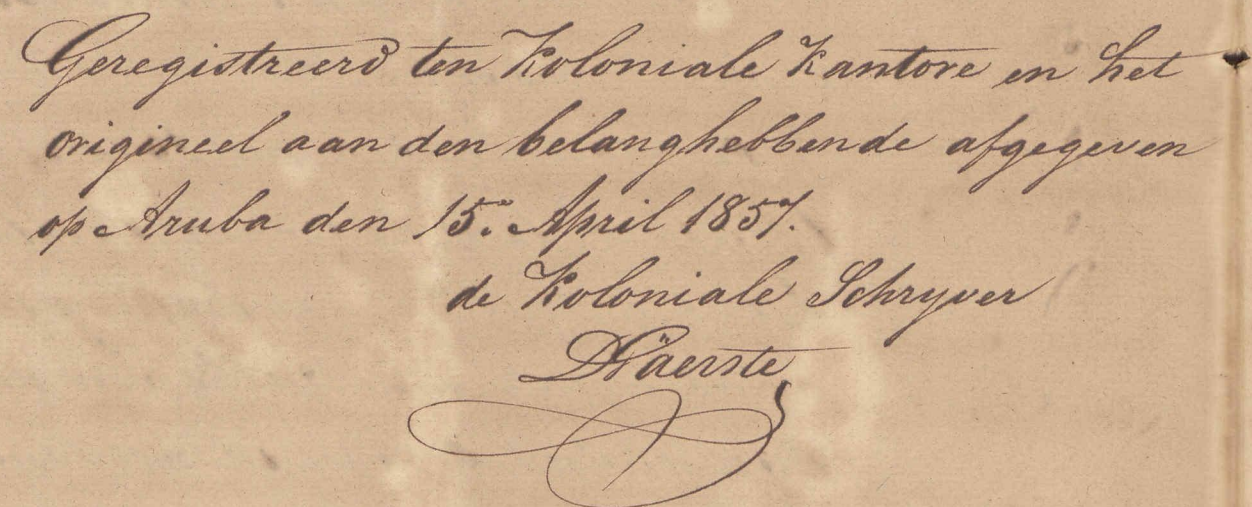 Geregistreerd ten Koloniale Kantore en het
origineel aan den belanghebbende afgegeven
op Aruba den 15.e April 1857.
de Koloniale Schryver